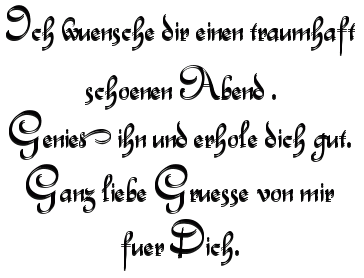 Ich wuensche dir einen traumhaft
schoenen Abend .
Genies ihn und erhole dich gut.
Ganz liebe Gruesse von mir
fuer Dich.